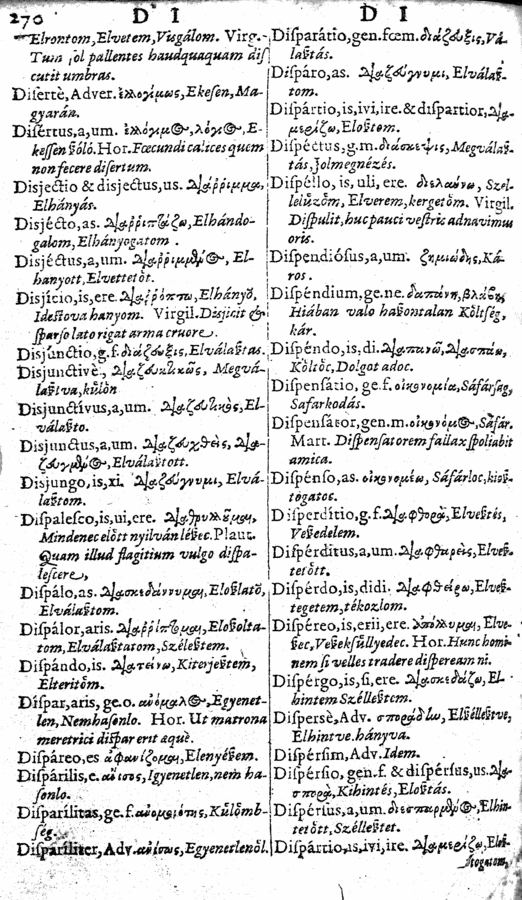 270 D I D I
Elrontom, Elvetem, Vusgálom. Virg.
Tum ſol pallentes haudquaquam diſ
cutit umbras.
Diſertè, Adver. ἐλλογίμως, Ekeſen, Ma-
gyarán.
Diſértus, a, um. ἐλλόγιμος, λόγιος, E-
keſſen
non fecere diſertum.
Disjectio & disjectus, us. διάῤῥιμμα,
Elhányás.
Disjécto, as. διαῤῥιπτάζω, Elhándo-
galom, Elhányogatom.
Disjéctus, a, um. El-
hanyott, Elvettetòt.
Disjício, is, ere. Elhányő,
hanyom. Virgil. Disjicit &
ſparſo latè rigat arma cruore.
Disjúnctio, g. f. διάζευξις, Elválaſtas.
Disjunctivè, διαζευκτικῶς, Megvá-
laſtva, kúlòn
Disjunctívus, a, um. διαζευκτικὸς, El-
válaſto.
Disjunctus, a, um. διαζευχθεὶς, δια-
Elválaſtott.
Disjungo, is, xi. διαζεύγνυμι, Elvá-
laſtom.
Diſpaleſco, is, ui, ere.
Mindenec elòtt nyilván léſec. Plaut.
Quam illud flagitium vulgo diſpa-
leſcere,
Diſpálo, as. διασκεδάννυμαι, Eloſlatő,
Elválaſtom.
Diſpálor, aris. διαῤῥίπτομαι, Eloſolta-
tom, Elválaſtatom, Széleſtem.
Diſpándo, is. διατείνω, Kiterjeſtem,
Elteritőm.
Diſpar, aris, ge. o. ἀνόμαλος, Egyenet-
len, Nemhaſonlo. Hor. Ut matrona
meretrici diſpar erit æquè.
Diſpáreo, es ἀφανίζομαι, Elenyéſem.
Diſpárilis, e. ἄνισος, Igyenetlen, nem ha-
ſonlo.
Diſparílitas, ge. f. Kúlòmb-
ſég.
Diſparíliter, Adv. ἀνίσως, Egyenetlenòl.
Diſparátio, gen. fœm. διάζευξις, Vá-
laſtás.
Diſpáro, as. διαζεύγνυμι, Elválaſ-
tom.
Diſpártio, is, ivi, ire. & diſpartior, δια-
μερίζω, Eloſtom.
Diſpéctus, g. m. διάσκεψις, Megválaſ-
tás, Jolmegnézés.
Diſpéllo, is, uli, ere. διελαύνω, Szel-
Elverem, kergetòm. Virgil.
Diſpulit, huc pauci veſtris adnavimus
oris.
Diſpendióſus, a, um. ζημιώδης, Ká-
ros.
Diſpéndium, ge. ne. δαπάνη, βλάβη,
Hiában valo haſontalan Kòltſég,
kár.
Diſpéndo, is, di. διαπανῶ, διασπάω,
Kòltòc, Dolgot adoc.
Diſpenſátio, ge. f. οἰκονομία, Sáfárſag,
Safarkodás.
Diſpenſátor, gen. m. οἰκονόμος, Sáfár.
Mart. Diſpenſatorem fallax ſpoliabit
amica.
Diſpénſo, as. οἰκονομέω, Sáfárloc,
togatoc.
Diſperdítio, g. f. διαφθορὰ, Elveſtés,
Veſedelem.
Diſpérditus, a, um. διαφθαρεὶς, Elveſ-
tetòtt.
Diſpérdo, is, didi. διαφθείρω, Elveſ-
tegetem, tékozlom.
Diſpéreo, is, erii, ere. ἀπόλλυμαι, Elve-
ſec, Hor. Hunc homi-
nem ſi velles tradere diſpeream ni.
Diſpérgo, is, ſi, ere. διασκεδάζω, El-
hintem Szélleſtem.
Diſpersè, Adv. σποράδην, Elſélleſtve,
Elhintve. hányva.
Diſpérſim, Adv. Idem.
Diſpérſio, gen. f. & diſpérſus, us. δια-
σπορὰ, Kihintés, Eloſtás.
Diſpérſus, a, um. Elhin-
tetòtt, Szélleſtet.
Diſpártio, is, ivi, ire. διαμερίζω, Eloſ-